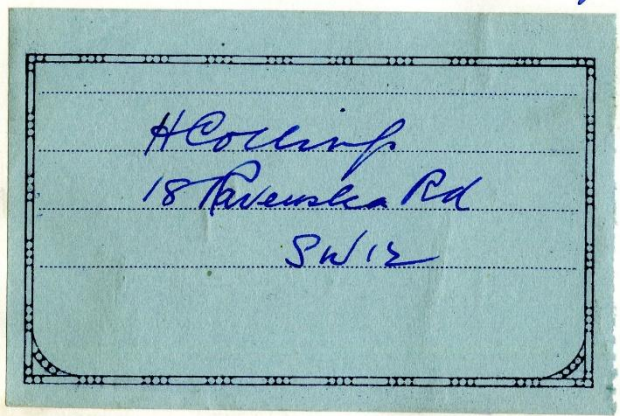 H Collings
18 Ravenslea Rd
SW12